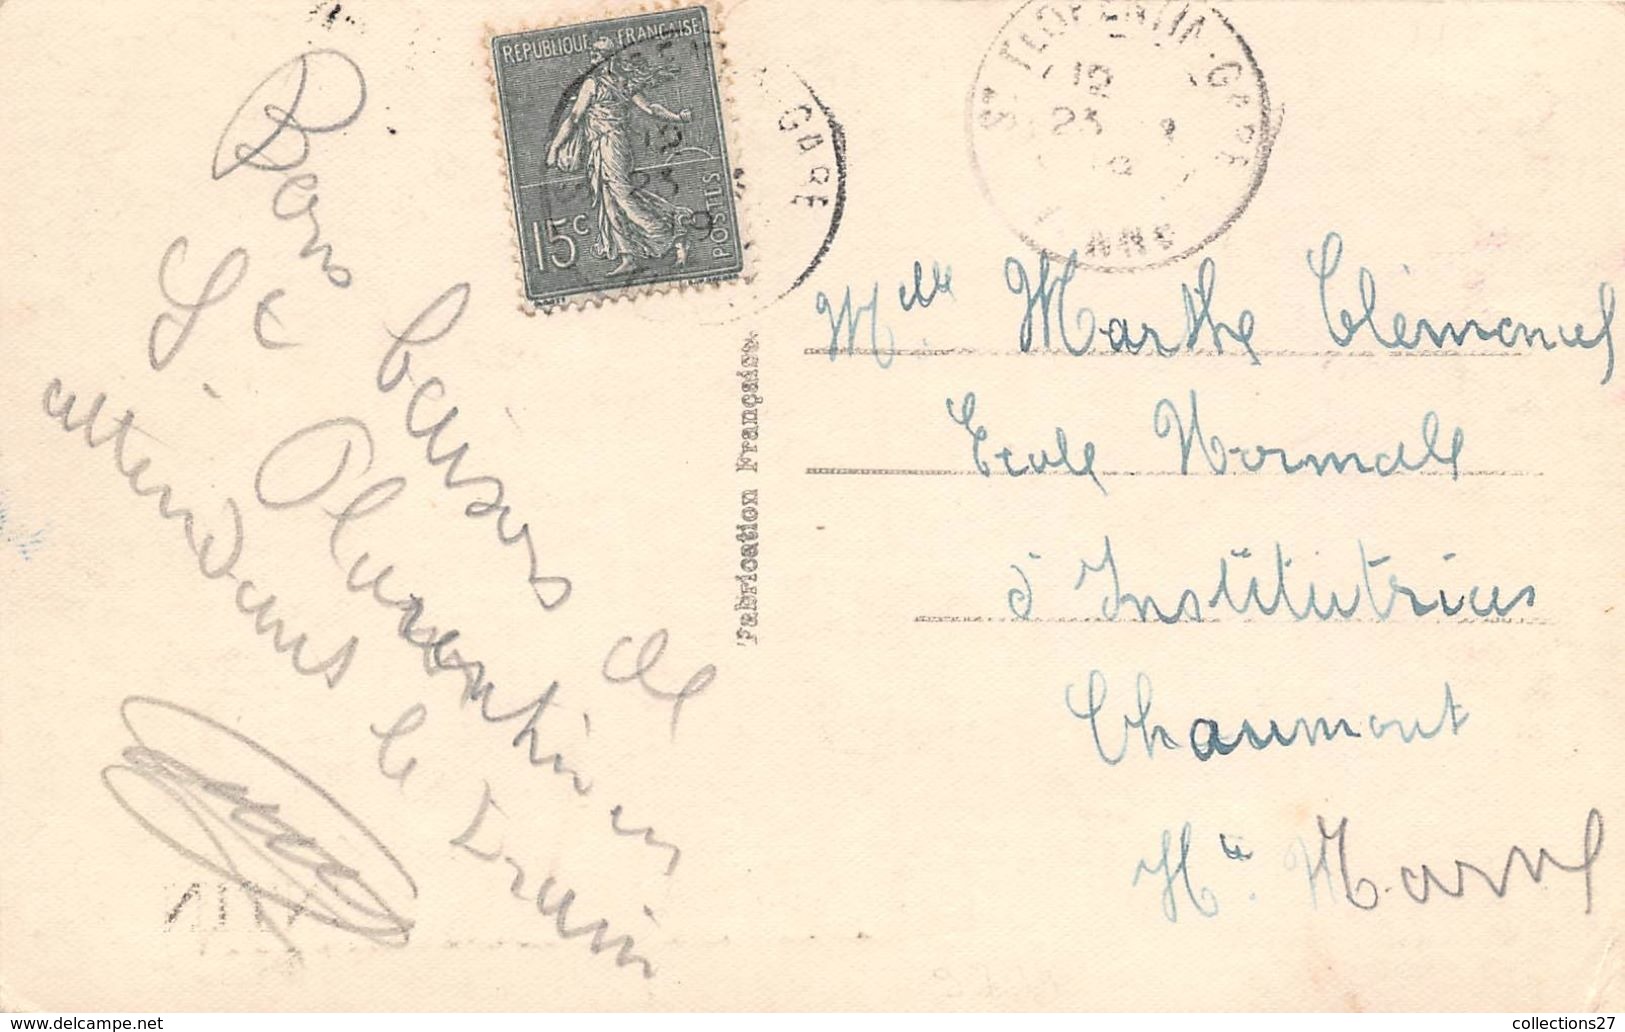 RÉPUBLIQUE FRANÇAISE
15c
POSTES
GARE
ST FLORENTIN-GARE
23
Bons baisers de
St Florentin en
attendant le train
Fabrication Française.
Melle Marthe Clémence
Ecole Normale
d'Institutrices
Chaumont
Hte Marne
www.delcampe.net
collections27